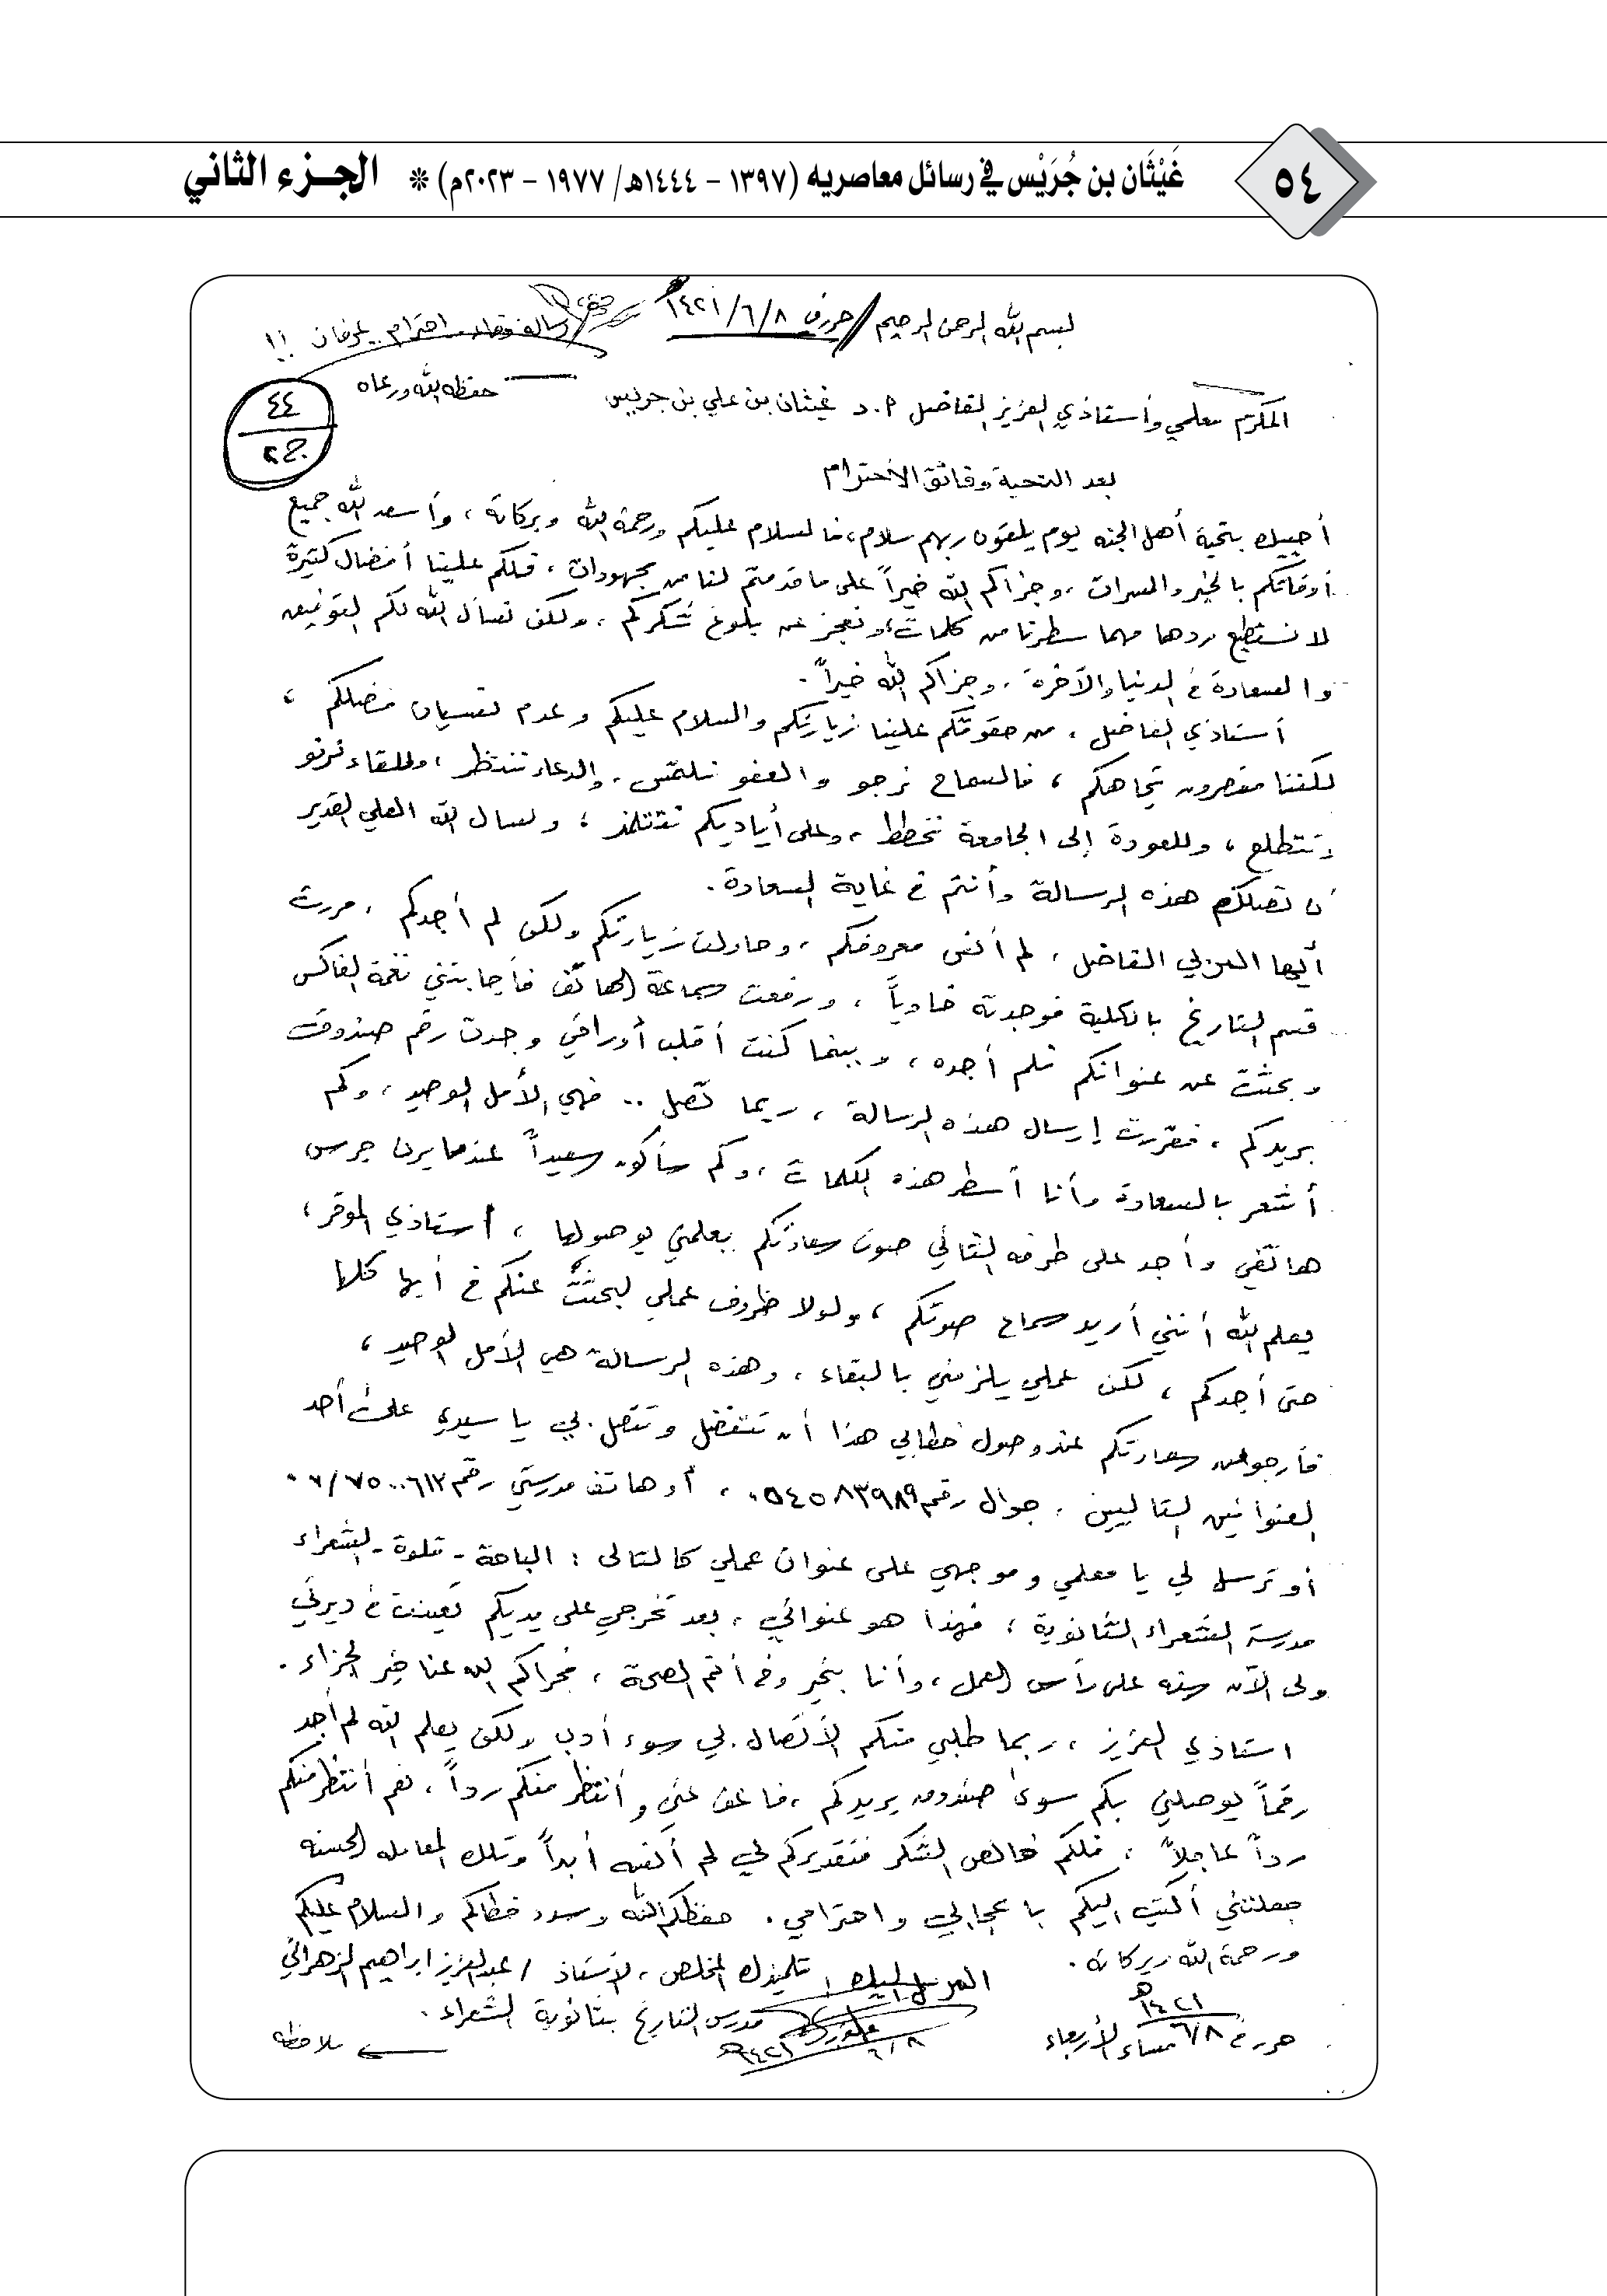 ٥٤
غَيْثَان بن جُرَيْس في رسائل معاصريه (١٣٩٧ - ١٤٤٤هـ/ ١٩٧٧ - ٢٠٢٣م) * الجـزء الثاني
بسم الله الرحمن الرحيم / حرر في ١٤٢١/٦/٨هـ رسالة وفاء احترام عرفان !!
المكرم معلمي وأستاذي العزيز الفاضل أ.د غيثان بن علي بن جريس حفظه الله ورعاه
٤٤
ج٢
بعد التحية وفائق الاحترام
أحييك بتحية أهل الجنه يوم يلقون ربهم سلام، فالسلام عليكم ورحمة الله وبركاته، وأسعد الله جميع
أوقاتكم بالخير والمسرات، وجزاكم الله خيراً على ما قدمتم لنا من مجهودات، فلكم علينا أفضال كثيرة
لا نستطيع ردها مهما سطرنا من كلمات، ونعجز عن بلوغ شكركم، ولكن نسأل الله لكم التوفيق
والسعادة في الدنيا والآخرة، وجزاكم الله خيراً.
أستاذي الفاضل، من حقوقكم علينا زيارتكم والسلام عليكم وعدم نسيان فضلكم،
لكننا مقصرون تجاهكم، فالسماح نرجو والعفو نلتمس، والدعاء ننتظر، وللقاء نرنو
ونتطلع، وللعودة إلى الجامعة نخطط، وعلى أياديكم نتتلمذ، ونسال الله العلي القدير
أن تصلكم هذه الرسالة وأنتم في غاية السعادة.
أيها المربي الفاضل، لم أنس معروفكم، وحاولت زيارتكم ولكن لم أجدكم، مررت
قسم التاريخ بالكلية فوجدته خاوياً، ورفعت سماعة الهاتف فأجابتني نغمة الفاكس
وبحثت عن عنوانكم فلم أجده، وبينما كنت أقلب أوراقي وجدت رقم صندوق
بريدكم، فقررت إرسال هذه الرسالة، ربما تصل .. فهي الأمل الوحيد، وكم
أشعر بالسعادة وأنا أسطر هذه الكلمات، وكم سأكون سعيداً عندما يرن جرس
هاتفي وأجد على طرفه الثاني صوت سعادتكم يعلمني بوصولها، أستاذي الموقر،
يعلم الله أنني أريد سماع صوتكم، ولولا ظروف عملي لبحثت عنكم في أبها كلها
حتى أجدكم، لكن عملي يلزمني بالبقاء، وهذه الرسالة هي الأمل الوحيد،
فأرجو من سعادتكم عند وصول خطابي هذا أن تتفضل وتتصل بي يا سيدي على أحد
العنوانين التاليين، جوال رقم ٠٥٤٥٨٣٩٨٩، أو هاتف مدرستي رقم ٠٧/٧٥٠٠٦١٢
أو ترسل لي يا معلمي وموجهي على عنوان عملي كالتالي: الباحة - قلوة - الشعراء
مدرسة الشعراء الثانوية، فهذا هو عنواني، بعد تخرجي على يديكم تعينت في ديرتي
ولي الآن سنه على رأس العمل، وأنا بخير وفي أتم الصحة، فجزاكم الله عنا خير الجزاء.
استاذي العزيز، ربما طلبي منكم الأتصال بي سوء أدب ولكن يعلم الله لم أجد
رقماً يوصلني بكم سوى صندوق بريدكم، فاعف عني وأنتظر منكم رداً، نعم أنتظر منكم
رداً عاجلاً، فلكم خالص الشكر فتقديركم لي لم أنسه أبداً وتلك المعامله الحسنه
جعلتني أكتب اليكم باعجابي واحترامي. حفظكم الله وسدد خطاكم والسلام عليكم
ورحمة الله وبركاته.
المرسل اليك / تلميذك المخلص، الأستاذ / عبد العزيز ابراهيم الزهراني
مدرس التاريخ بثانوية الشعراء.
حرر في ٦/٨ ١٤٢١هـ مساء الأربعاء
٦/٨ ١٤٢١هـ
ملاحظه